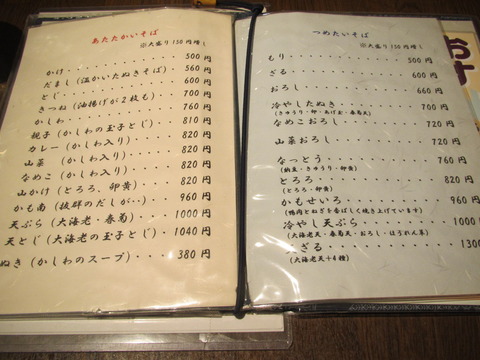 あたたかいそば
※大盛り150円増し
かけ・・・・・・・・・・500円
だまし(温かいたぬきそば)・・・560円
とじ・・・・・・・・・・600円
きつね(油揚げが2枚も)・・・700円
かしわ・・・・・・・・・760円
親子(かしわの玉子とじ)・・・810円
カレー(かしわ入り)・・・・820円
山菜 (かしわ入り)・・・・820円
なめこ(かしわ入り)・・・・820円
山かけ(とろろ・卵黄)・・・820円
かも南(抜群のだしが…)・・・960円
天ぷら(大海老・春菊)・・・1000円
天とじ(大海老の玉子とじ)・・・1040円
ぬき(かしわのスープ)・・・・380円
つめたいそば
※大盛り150円増し
もり・・・・・・・・・・500円
ざる・・・・・・・・・・600円
おろし・・・・・・・・・660円
冷やしたぬき・・・・・・700円
(きゅうり・卵・あげ玉・春菊天)
なめこおろし・・・・・・720円
山菜おろし・・・・・・・720円
なっとう・・・・・・・・760円
(納豆・きゅうり・卵黄)
とろろ・・・・・・・・・820円
(とろろ・卵黄)
かもせいろ・・・・・・・960円
(鴨肉とねぎを香ばしく焼き上げています)
冷やし天ぷら・・・・・・1000
(大海老天・春菊天・おろし・ほうれん草)
天ざる・・・・・・・・・1300
(大海老天+4種)